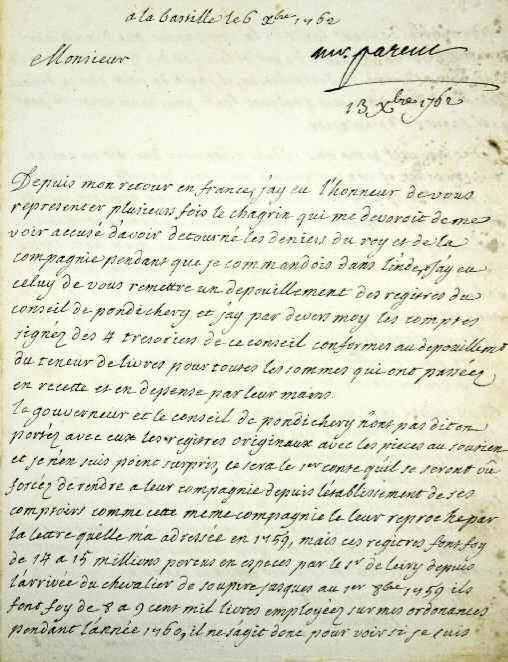 a la bastille le 6 xbre 1762
Monsieur
mr. parent
13 Xbre 1762
Depuis mon retour en france, j'ay eu l'honneur de vous
representer plusieurs fois le chagrin qui me devoroit de me
voir accusé d'avoir detourné les deniers du roy et de la
compagnie pendant que je commandois dans l'inde, j'ay eu
celuy de vous remettre un depouillement des regitres du
conseil de pondichery et j'ay par devers moy les comptes
signéz des 4 tresoriers de ce conseil conformes au depouillement
du teneur de livres pour toutes les sommes qui ont passeéz
en recette et en depense par leur mains.
le gouverneur et le conseil de pondichery n'ont pas dit en
portés avec eux les registres originaux avec les pieces au soutien
et je n'en suis point surpris, ce sera le 1er conte qu'il se seront vu
forcéz de rendre a leur compagnie depuis l'établissement de ses
comptoirs comme cette meme compagnie le leur reproche par
la lettre qu'elle m'a adressée en 1759, mais ces regitres font foy
de 14 a 15 millions percus en especes par le Sr de leiry depuis
l'arrivée du chevalier de soupire jusques au 1er 8bre 1759 ils
font foy de 8 a 9 cent mil livres employéez sur mes ordonances
pendant l'année 1760, il ne s'agit donc pour voir si je suis